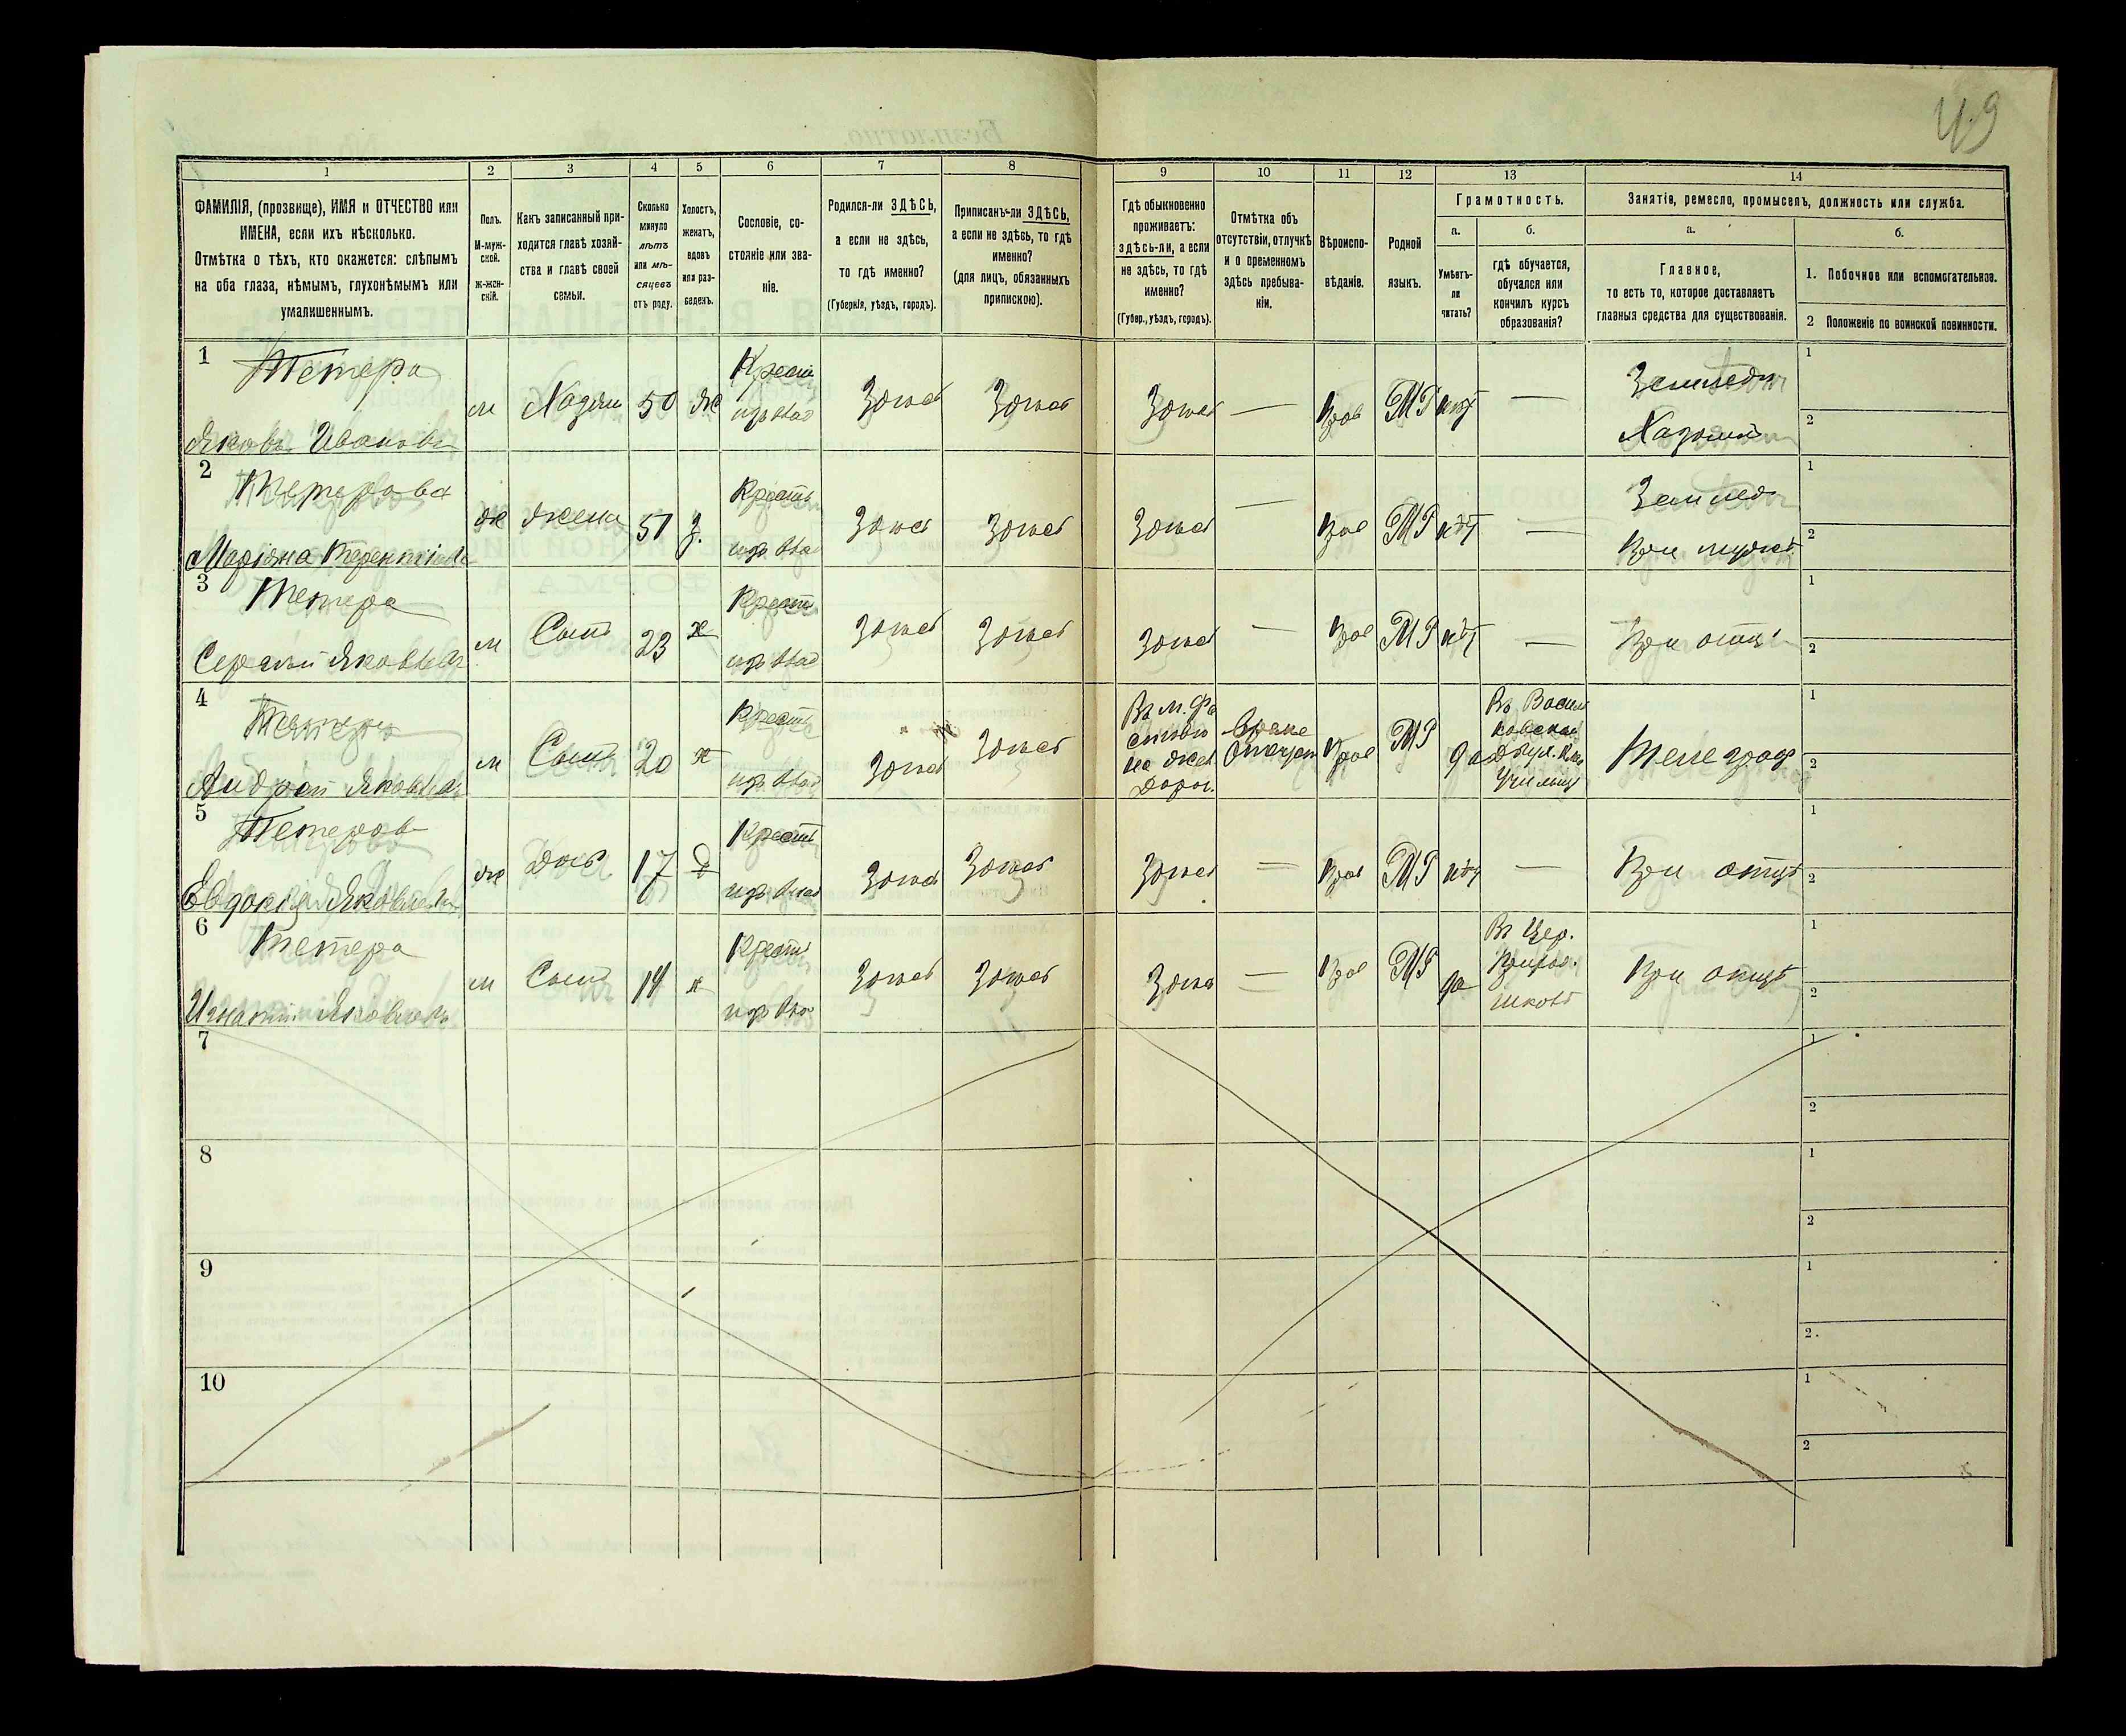 49
1
2
3
4
5
6
7
8
9
10
11
12
13
14
ФАМИЛІЯ, (прозвище), ИМЯ и ОТЧЕСТВО или
ИМЕНА, если ихъ нѣсколько.
Отмѣтка о тѣхъ, кто окажется: слѣпымъ
на оба глаза, нѣмымъ, глухонѣмымъ или
умалишеннымъ.
Полъ.
М-муж-
ской.
ж-жен-
скій.
Какъ записанный при-
ходится главѣ хозяй-
ства и главѣ своей
семьи.
Сколько
минуло
лѣтъ
или мѣ-
сяцевъ
отъ роду.
Холостъ,
женатъ,
вдовъ
или раз-
веденъ.
Сословіе, со-
стояніе или зва-
ніе.
Родился-ли ЗДѢСЬ,
а если не здѣсь,
то гдѣ именно?
(Губернія, уѣздъ, городъ).
Приписанъ-ли ЗДѢСЬ,
а если не здѣсь, то гдѣ
именно?
(для лицъ, обязанныхъ
припискою).
Гдѣ обыкновенно
проживаетъ:
здѣсь-ли, а если
не здѣсь, то гдѣ
именно?
(Губер., уѣздъ, городъ).
Отмѣтка объ
отсутствіи, отлучкѣ
и о временномъ
здѣсь пребыва-
ніи.
Вѣроиспо-
вѣданіе.
Родной
языкъ.
Грамотность.
а.
Умѣетъ-
ли
читать?
б.
гдѣ обучается,
обучался или
кончилъ курсъ
образованія?
Занятія, ремесло, промыселъ, должность или служба.
а.
Главное,
то есть то, которое доставляетъ
главныя средства для существованія.
б.
1. Побочное или вспомогательное.
2 Положеніе по воинской повинности.
1
Тетера
Яковъ Ивановъ
м
Хозяи
50
же
Крест
изъ влад
Здесь
Здесь
Здесь
—
Прав
МР
нѣт
—
Землед
Хозяин
1
2
2
Тетерова
Маріяна Терентіева
же
жена
51
з.
Крестъ
изъ влад
Здесь
Здесь
Здесь
—
Прав
МР
нѣт
—
Землед
При мужѣ
1
2
3
Тетера
Сергѣй Яковлев
м
Сынъ
23
х
Крестъ
изъ влад
Здесь
Здесь
Здесь
—
Прав
МР
нѣт
—
При отцѣ
1
2
4
Тетера
Андрей Яковлев
м
Сынъ
20
х
Крестъ
изъ влад
Здесь
Здесь
Въ м. Фа
стовѣ
на жел
дорог.
Прав
МР
да
Въ Васил
ковском
Училищ
Телеграф
1
2
5
Тетеров
Евдокія Яковлев
же
Дочь
17
д
Крестъ
изъ влад
Здесь
Здесь
Здесь
—
Прав
МР
нѣт
—
При отцѣ
1
2
6
Тетера
Игнатій Яковлевъ
м
Сынъ
14
х
Крестъ
изъ вла
Здесь
Здесь
Здесь
—
Прав
МР
да
Въ Цер.
Приход.
школѣ
При отцѣ
1
2
7
1
2
8
1
2
9
1
2
10
1
2